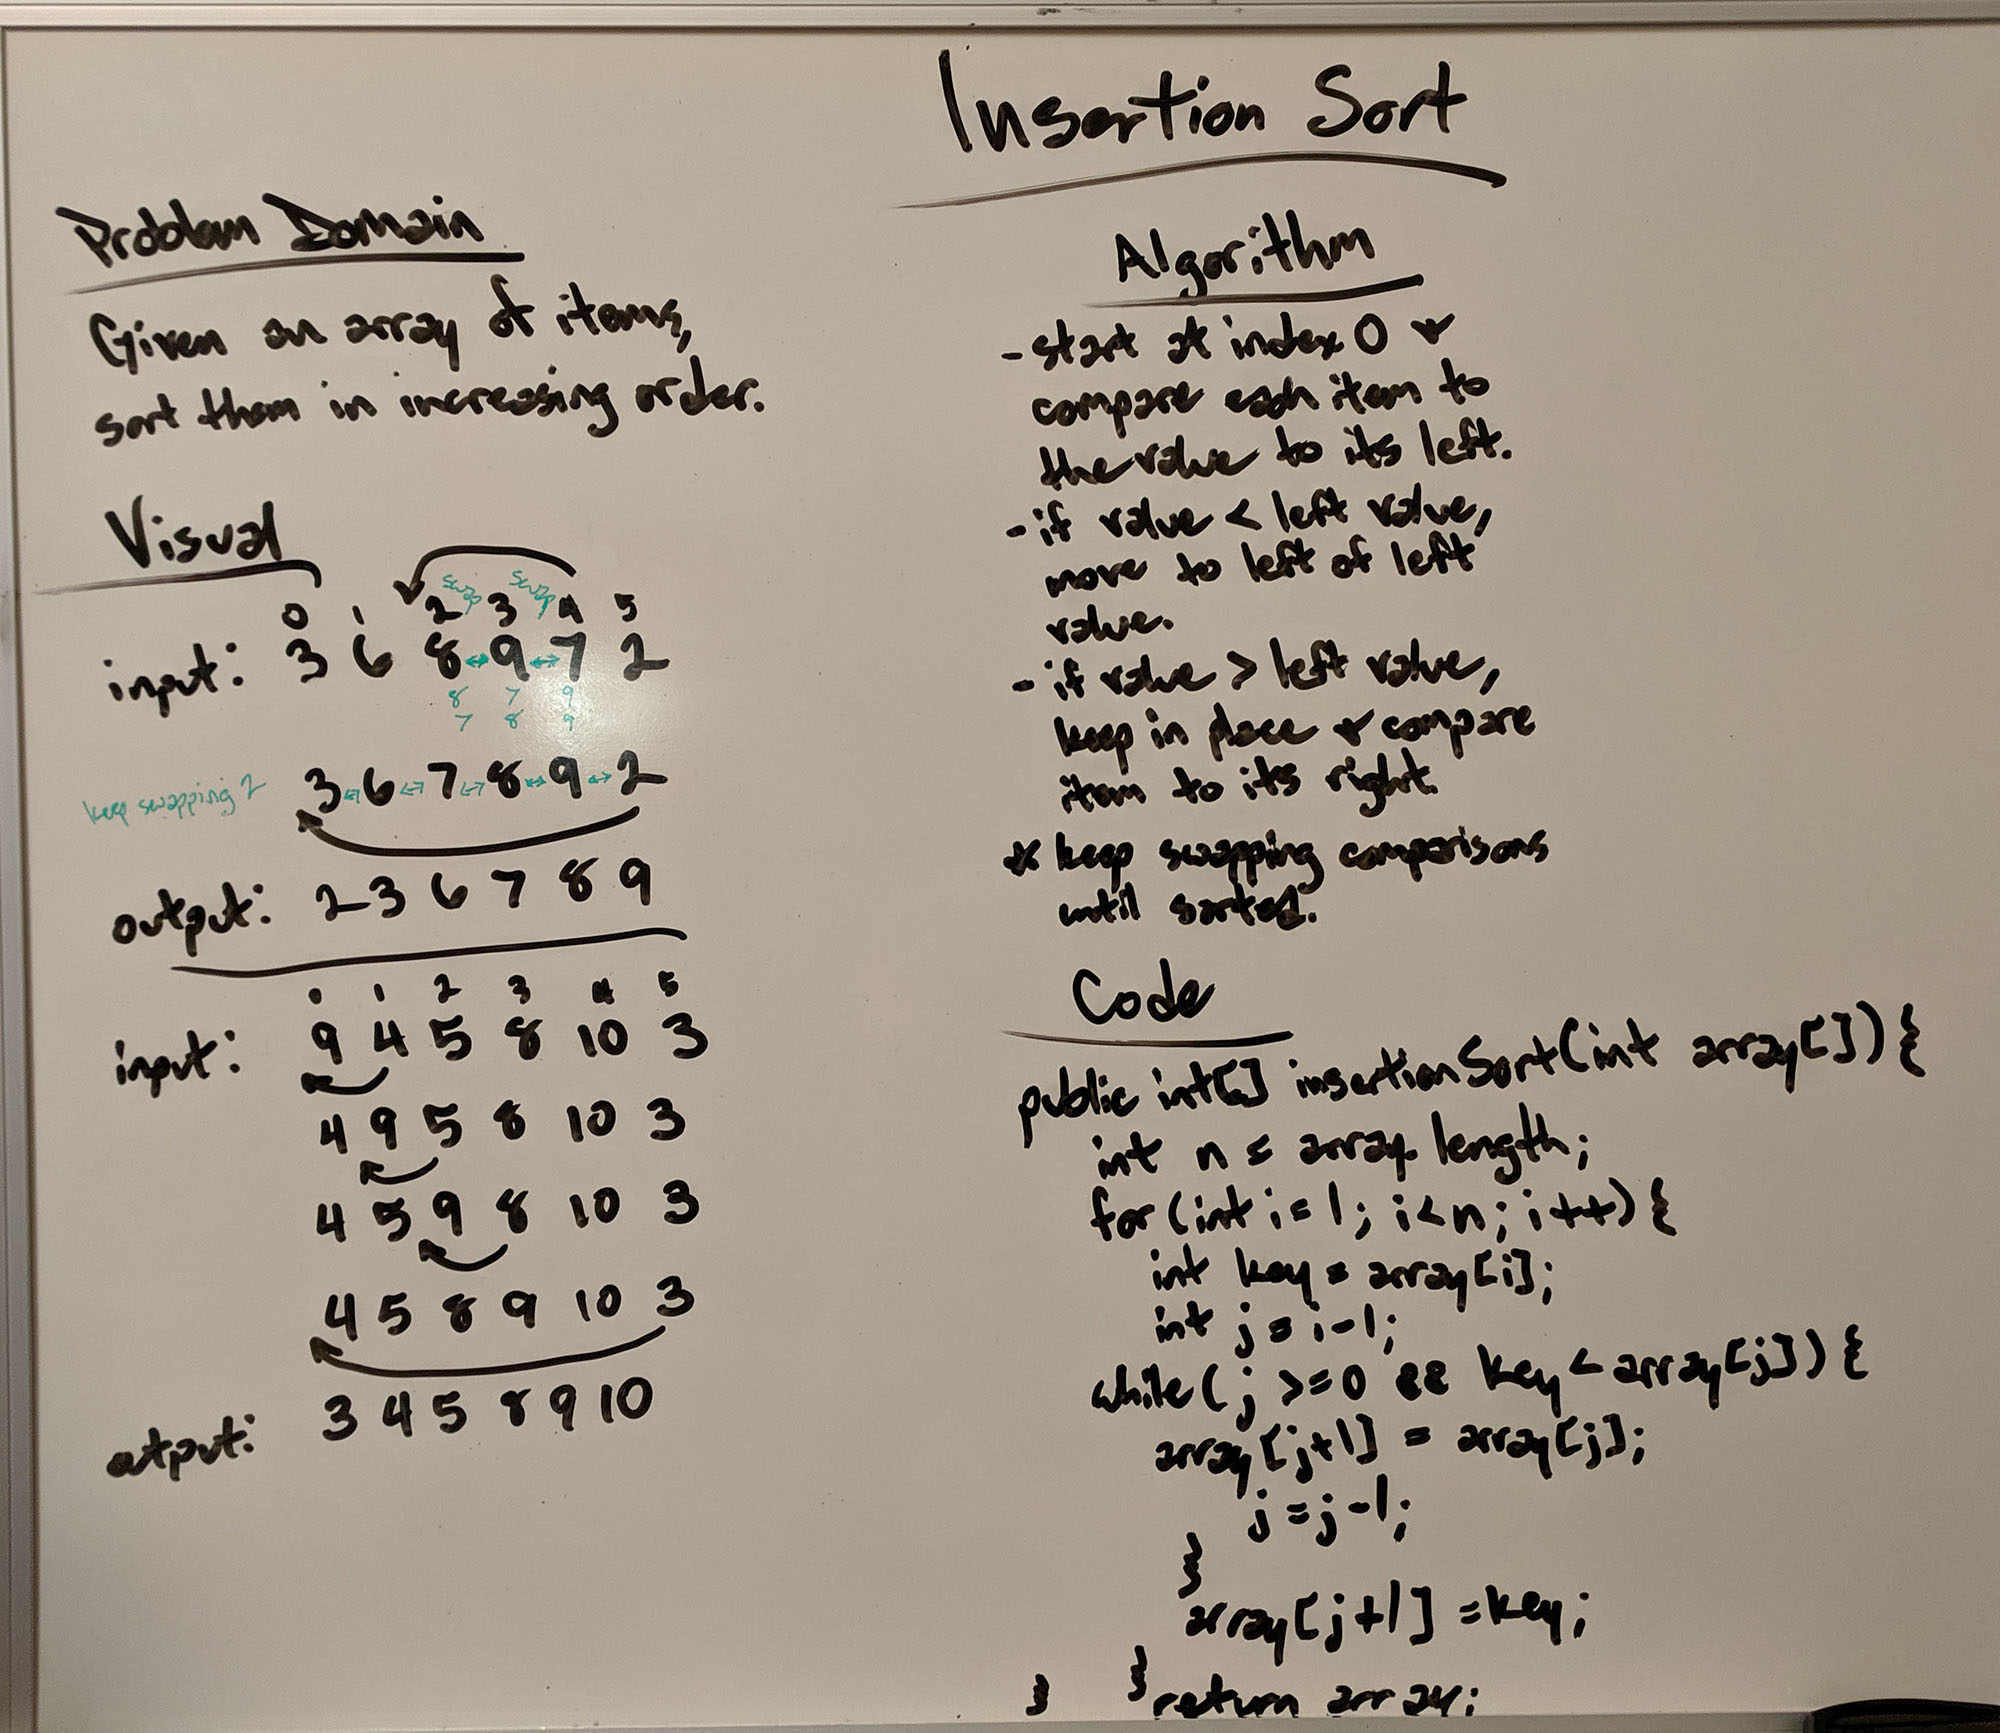 Insertion Sort
Problem Domain
Given an array of items,
sort them in increasing order.
Visual
swap swap
0 1 2 3 4 5
input: 3 6 8 ↔ 9 ↔ 7 2
8 7 9
7 8 9
keep swapping 2 3 ↔ 6 ↔ 7 ↔ 8 ↔ 9 ↔ 2
output: 2 3 6 7 8 9
0 1 2 3 4 5
input: 9 4 5 8 10 3
4 9 5 8 10 3
4 5 9 8 10 3
4 5 8 9 10 3
output: 3 4 5 8 9 10
Algorithm
- start at index 0 +
compare each item to
the value to its left.
- if value < left value,
move to left of left
value.
- if value > left value,
keep in place + compare
item to its right.
* keep swapping comparisons
until sorted.
Code
public int[] insertionSort(int array[]) {
int n = array.length;
for (int i = 1; i < n; i++) {
int key = array[i];
int j = i-1;
while (j >= 0 && key < array[j]) {
array[j+1] = array[j];
j = j-1;
}
array[j+1] = key;
} return array;
}